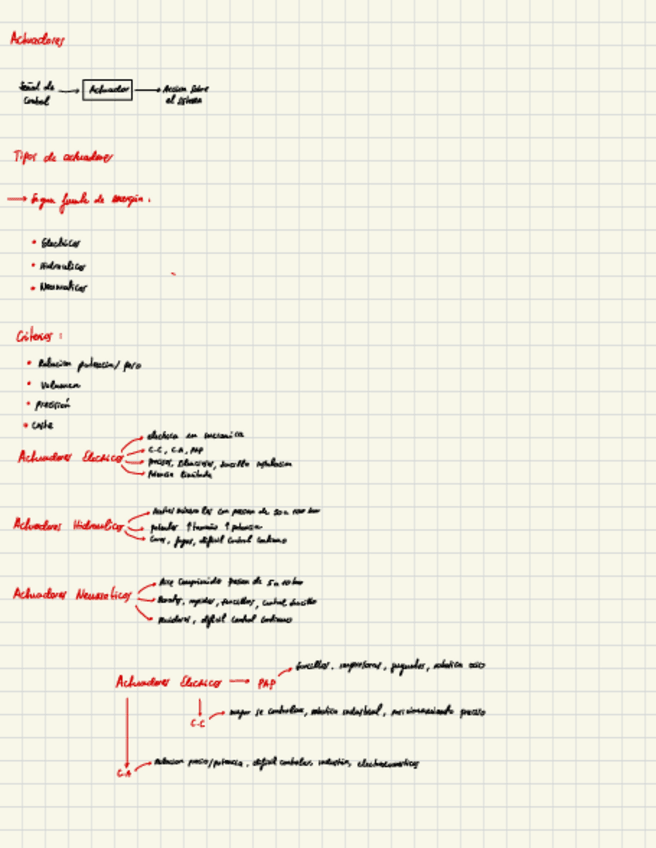 Actuadores
Señal de control → Actuador → Accion sobre el sistema
Tipos de actuadores
→ Segun fuente de energia:
• Electricos
• Hidraulicos
• Neumaticos
Criterios:
• Relacion potencia/peso
• Volumen
• precisión
• coste
Actuadores Electrico
electrica en mecanica
C.C, C.A, PAP
precisos, silenciosos, sencilla instalacion
Potencia limitada
Actuadores Hidraulico
minerales con presion de 50 a 100 bar
potentes ↑ tamaño ↑ potencia
Caros, fugas, dificil control continuo
Actuadores Neumaticos
Aire Comprimido presion de 5 a 10 bar
Baratos, rapidos, sencillos, control sencillo
ruidosos, dificil control continuo
Actuadores Electrico → PAP
sencillos, impresoras, juguetes, robotica ocio
C.C
mejor se controlan, robotica industrial, posicionamiento preciso
C.A
Relacion peso/potencia, dificil controlar, industria, electrodomesticos